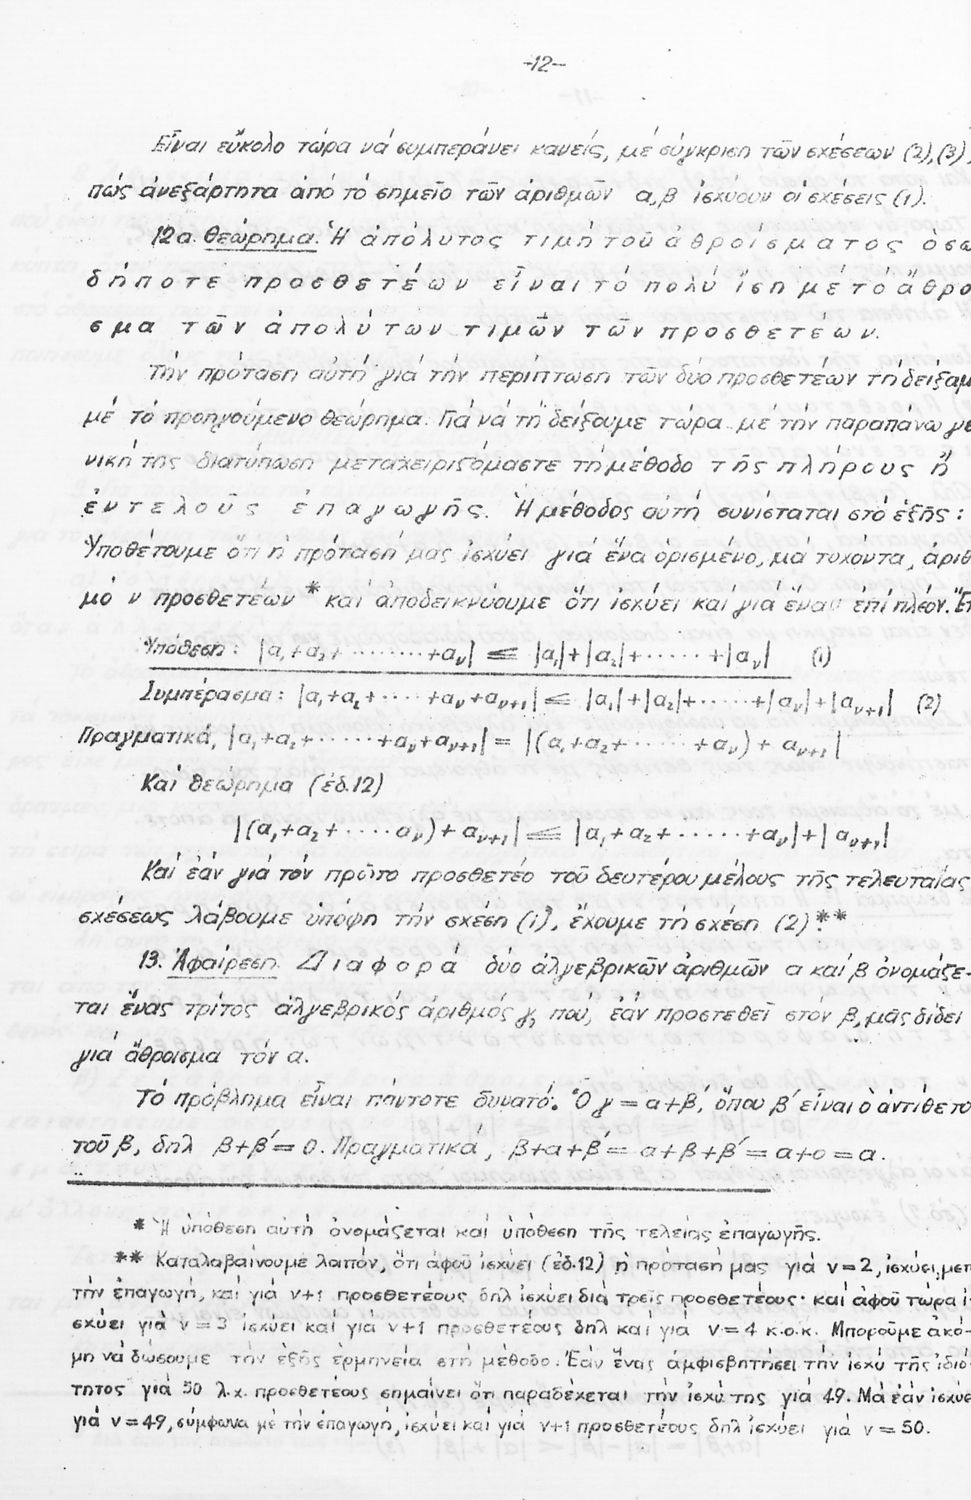 -12-
Εἶναι εὔκολο τώρα νά συμπεράνει κανείς, μέ σύγκριση τῶν σχέσεων (2),(3),
πώς ἀνεξάρτητα ἀπό τό σημεῖο τῶν ἀριθμῶν α,β ἰσχύουν οἱ σχέσεις (1).
12α. Θεώρημα. Ἡ ἀπόλυτος τιμή τοῦ ἀθροίσματος ὁσω
δήποτε προσθετέων εἶναι τό πολύ ἴση μέ τό ἄθρο
σμα τῶν ἀπολύτων τιμῶν τῶν προσθετέων.
Τήν πρόταση αὐτή γιά τήν περίπτωση τῶν δύο προσθετέων τή δείξαμ
μέ τό προηγούμενο θεώρημα. Γιά νά τή δείξουμε τώρα μέ τήν παραπάνω γε
νική της διατύπωση μεταχειριζόμαστε τή μέθοδο τῆς πλήρους ἤ
ἐντελοῦς ἐπαγωγῆς. Ἡ μέθοδος αὐτή συνίσταται στό ἑξῆς:
Ὑποθέτουμε ὅτι ἡ πρότασή μας ἰσχύει γιά ἕνα ὁρισμένο, μά τυχόντα, ἀριθ
μό ν προσθετέων * καί ἀποδεικνύουμε ὅτι ἰσχύει καί γιά ἕναν ἐπί πλέον. Ἔτ
Ὑπόθεση: |α₁+α₂+········+α_ν| ≤ |α₁|+|α₂|+······+|α_ν| (1)
Συμπέρασμα: |α₁+α₂+····+α_ν+α_ν+1| ≤ |α₁|+|α₂|+·····+|α_ν|+|α_ν+1| (2)
Πραγματικά, |α₁+α₂+······+α_ν+α_ν+1| = |(α₁+α₂+······+α_ν)+ α_ν+1|
Καί θεώρημα (ἐδ.12)
|(α₁+α₂+····α_ν)+α_ν+1| ≤ |α₁+α₂+······+α_ν|+|α_ν+1|
Καί ἐάν γιά τόν πρῶτο προσθετέο τοῦ δευτέρου μέλους τῆς τελευταίας
σχέσεως λάβουμε ὑπόψη τήν σχέση (1), ἔχουμε τή σχέση (2).**
13. Ἀφαίρεση. Διαφορά δύο ἀλγεβρικῶν ἀριθμῶν α καί β ὀνομάζε-
ται ἕνας τρίτος ἀλγεβρικός ἀριθμός γ, πού, ἐάν προστεθεῖ στόν β, μᾶς δίδει
γιά ἄθροισμα τόν α.
Τό πρόβλημα εἶναι πάντοτε δυνατό. Ὁ γ = α+β΄, ὅπου β΄ εἶναι ὁ ἀντίθετο
τοῦ β, δηλ β+β΄= 0. Πραγματικά, β+α+β΄= α+β+β΄= α+0 = α.
* Ἡ ὑπόθεση αὐτή ὀνομάζεται καί ὑπόθεση τῆς τελείας ἐπαγωγῆς.
** Καταλαβαίνουμε λοιπόν, ὅτι ἀφοῦ ἰσχύει (ἐδ.12) ἡ πρότασή μας γιά ν=2, ἰσχύει, μετ
τήν ἐπαγωγή, καί γιά ν+1 προσθετέους δηλ ἰσχύει διά τρεῖς προσθετέους· καί ἀφοῦ τώρα ἰ
σχύει γιά ν=3 ἰσχύει καί γιά ν+1 προσθετέους δηλ καί γιά ν=4 κ.ο.κ. Μποροῦμε ἀκό-
μη νά δώσουμε τήν ἑξῆς ἑρμηνεία στή μέθοδο. Ἐάν ἕνας ἀμφισβητήσει τήν ἰσχύ τῆς ἰδιό
τητος γιά 50 λ.χ. προσθετέους σημαίνει ὅτι παραδέχεται τήν ἰσχύ της γιά 49. Μά ἐάν ἰσχύε
γιά ν=49, σύμφωνα μέ τήν ἐπαγωγή, ἰσχύει καί γιά ν+1 προσθετέους δηλ ἰσχύει γιά ν=50.